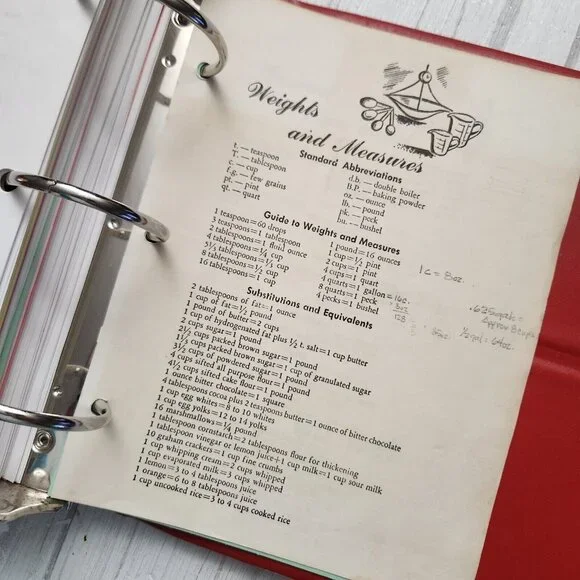 Weights
and Measures
Standard Abbreviations
t. — teaspoon
T. — tablespoon
c. — cup
f.g. — few grains
pt. — pint
qt. — quart
d.b. — double boiler
B.P. — baking powder
oz. — ounce
lb. — pound
pk. — peck
bu. — bushel
Guide to Weights and Measures
1 teaspoon=60 drops
3 teaspoons=1 tablespoon
2 tablespoons=1 fluid ounce
4 tablespoons=¼ cup
5⅓ tablespoons=⅓ cup
8 tablespoons=½ cup
16 tablespoons=1 cup
1 pound=16 ounces
1 cup=½ pint
2 cups=1 pint
4 cups=1 quart
4 quarts=1 gallon=16c.
8 quarts=1 peck
4 pecks=1 bushel
1 c = 8 oz.
8oz
128
½gal = 64oz.
Substitutions and Equivalents
2 tablespoons of fat=1 ounce
1 cup of fat=½ pound
1 pound of butter=2 cups
1 cup of hydrogenated fat plus ½ t. salt=1 cup butter
2 cups sugar=1 pound
2½ cups packed brown sugar=1 pound
1⅓ cups packed brown sugar=1 cup of granulated sugar
3½ cups of powdered sugar=1 pound
4 cups sifted all purpose flour=1 pound
4½ cups sifted cake flour=1 pound
1 ounce bitter chocolate=1 square
4 tablespoons cocoa plus 2 teaspoons butter=1 ounce of bitter chocolate
1 cup egg whites=8 to 10 whites
1 cup egg yolks=12 to 14 yolks
16 marshmallows=¼ pound
1 tablespoon cornstarch=2 tablespoons flour for thickening
1 tablespoon vinegar or lemon juice+1 cup milk=1 cup sour milk
10 graham crackers=1 cup fine crumbs
1 cup whipping cream=2 cups whipped
1 cup evaporated milk=3 cups whipped
1 lemon=3 to 4 tablespoons juice
1 orange=6 to 8 tablespoons juice
1 cup uncooked rice=3 to 4 cups cooked rice